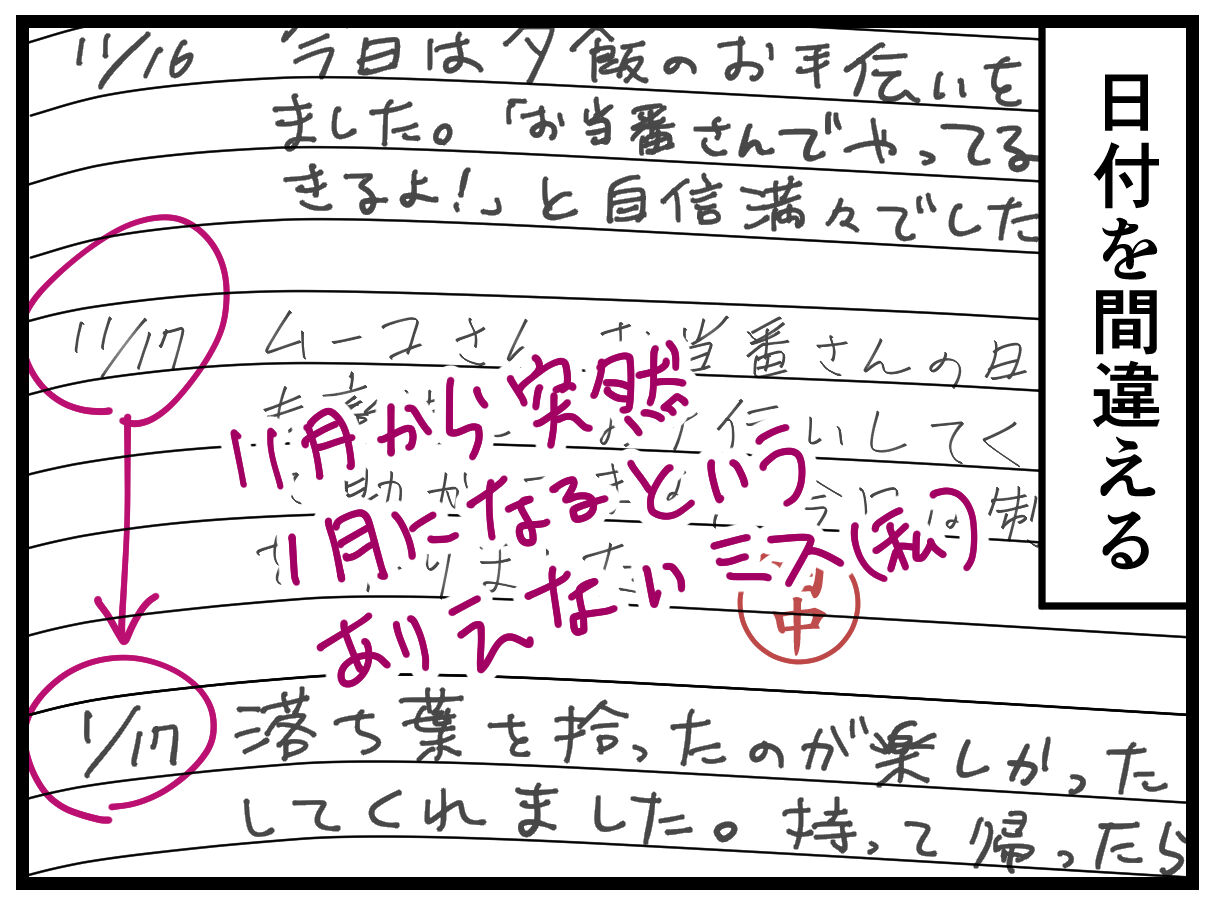 日付を間違える
11/16 今日は夕飯のお手伝いを
ました。「お当番さんでやってる
きるよ!」と自信満々でした
11/17 ムーコさん お当番さんの日
伝いしてく
助か
制
11月から突然
1月になるという
ありえないミス(私)
中
1/17 落ち葉を拾ったのが楽しかった
してくれました。持って帰ったら